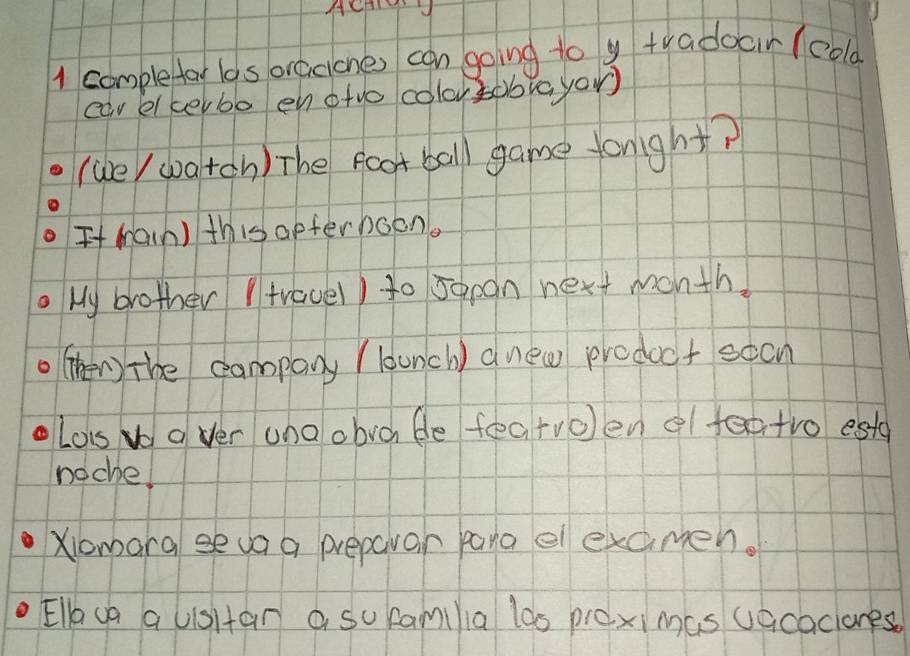 1 completar las oraciones con going to y traducir (colo
car el verbo en otro color sobrayar)
(We/watch) The foot ball game tonight?
It (rain) this afternoon.
My brother (travel) to Japan next month.
(Then) The company (launch) a new product soon
Luis va a ver una obra de teatro) en el teatro esta
noche.
Xiomara se va a preparar para el examen.
Ella va a visitar a su familia las proximas vacaciones.